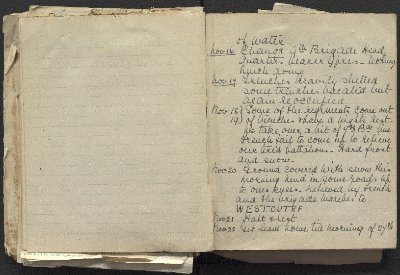 of water
Nov 16 Change 9th Brigade Head
Quarters nearer Ypres - nothing
much doing
Nov 17 Trenches heavily shelled
some trenches vacated but
again reoccupied
Nov 18 Some of the regiments come out
19 of trenches & have a nights rest
we take over a bit of 7th Bde line
French fail to come up to relieve
our tired battalions. Hard frost
and snow.
Nov 20 Ground covered with snow this
morning and in some roads up
to ones knees. relieved by French
and the brigade marches to
WESTOUTRE
Nov 21 Halt & rest
Nov 22 Get leave home till morning of 29th